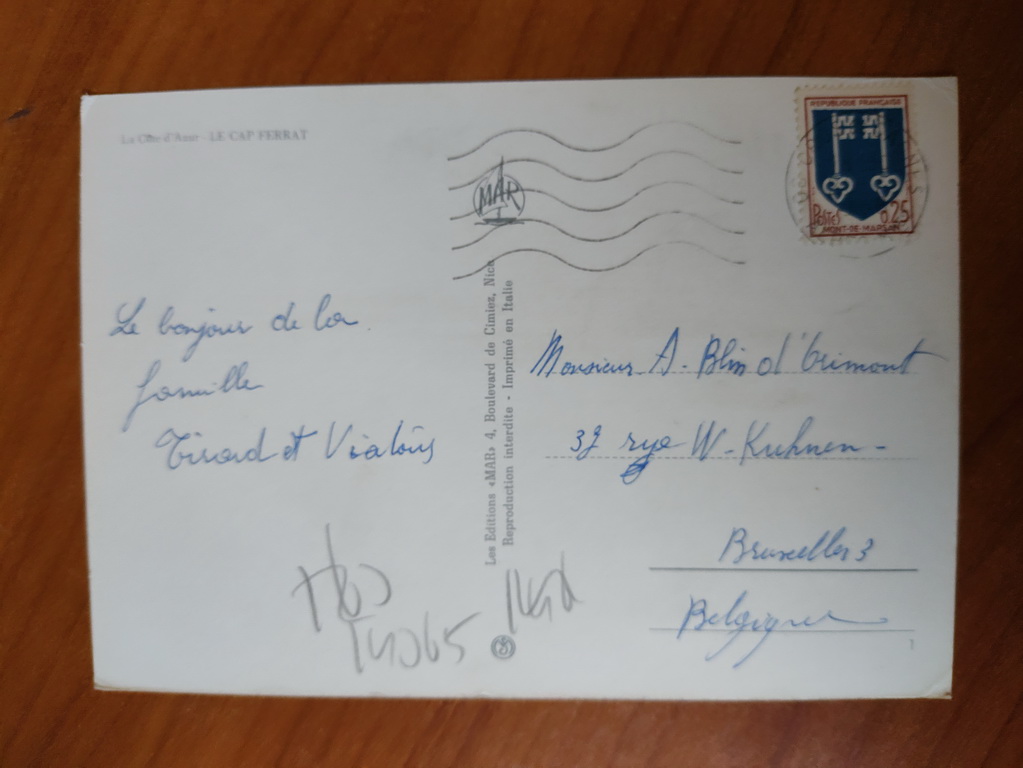 La Côte d'Azur - LE CAP FERRAT
REPUBLIQUE FRANÇAISE
POSTES 0,25
MONT-DE-MARSAN
MAR
Le bonjour de la
famille
Tirard et
Les Editions «MAR» 4, Boulevard de Cimiez, Nice
Reproduction interdite - Imprimé en Italie
Monsieur A. Blin d'Grimont
37 rye W-Kuhnen-
Bruxelles 3
Belgique
1